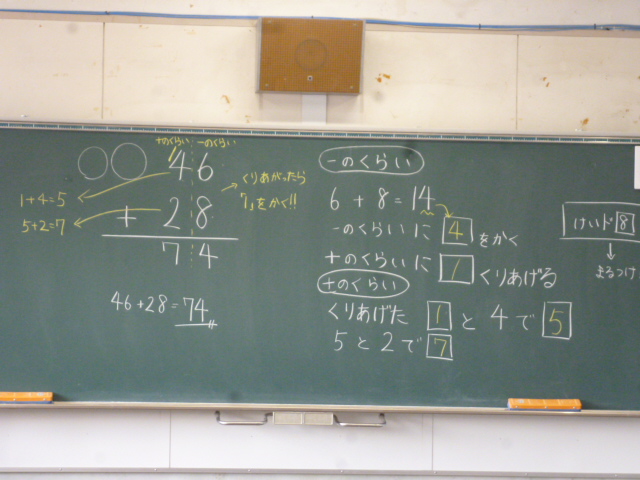 十のくらい 一のくらい
46
1+4=5
くりあがったら
「1」をかく!!
+ 28
5+2=7
74
46+28=74
一のくらい
6+8=14
一のくらいに 4 をかく
十のくらいに 1 くりあげる
十のくらい
くりあげた 1 と 4で 5
5と2で 7
けいド 8
まるつけ